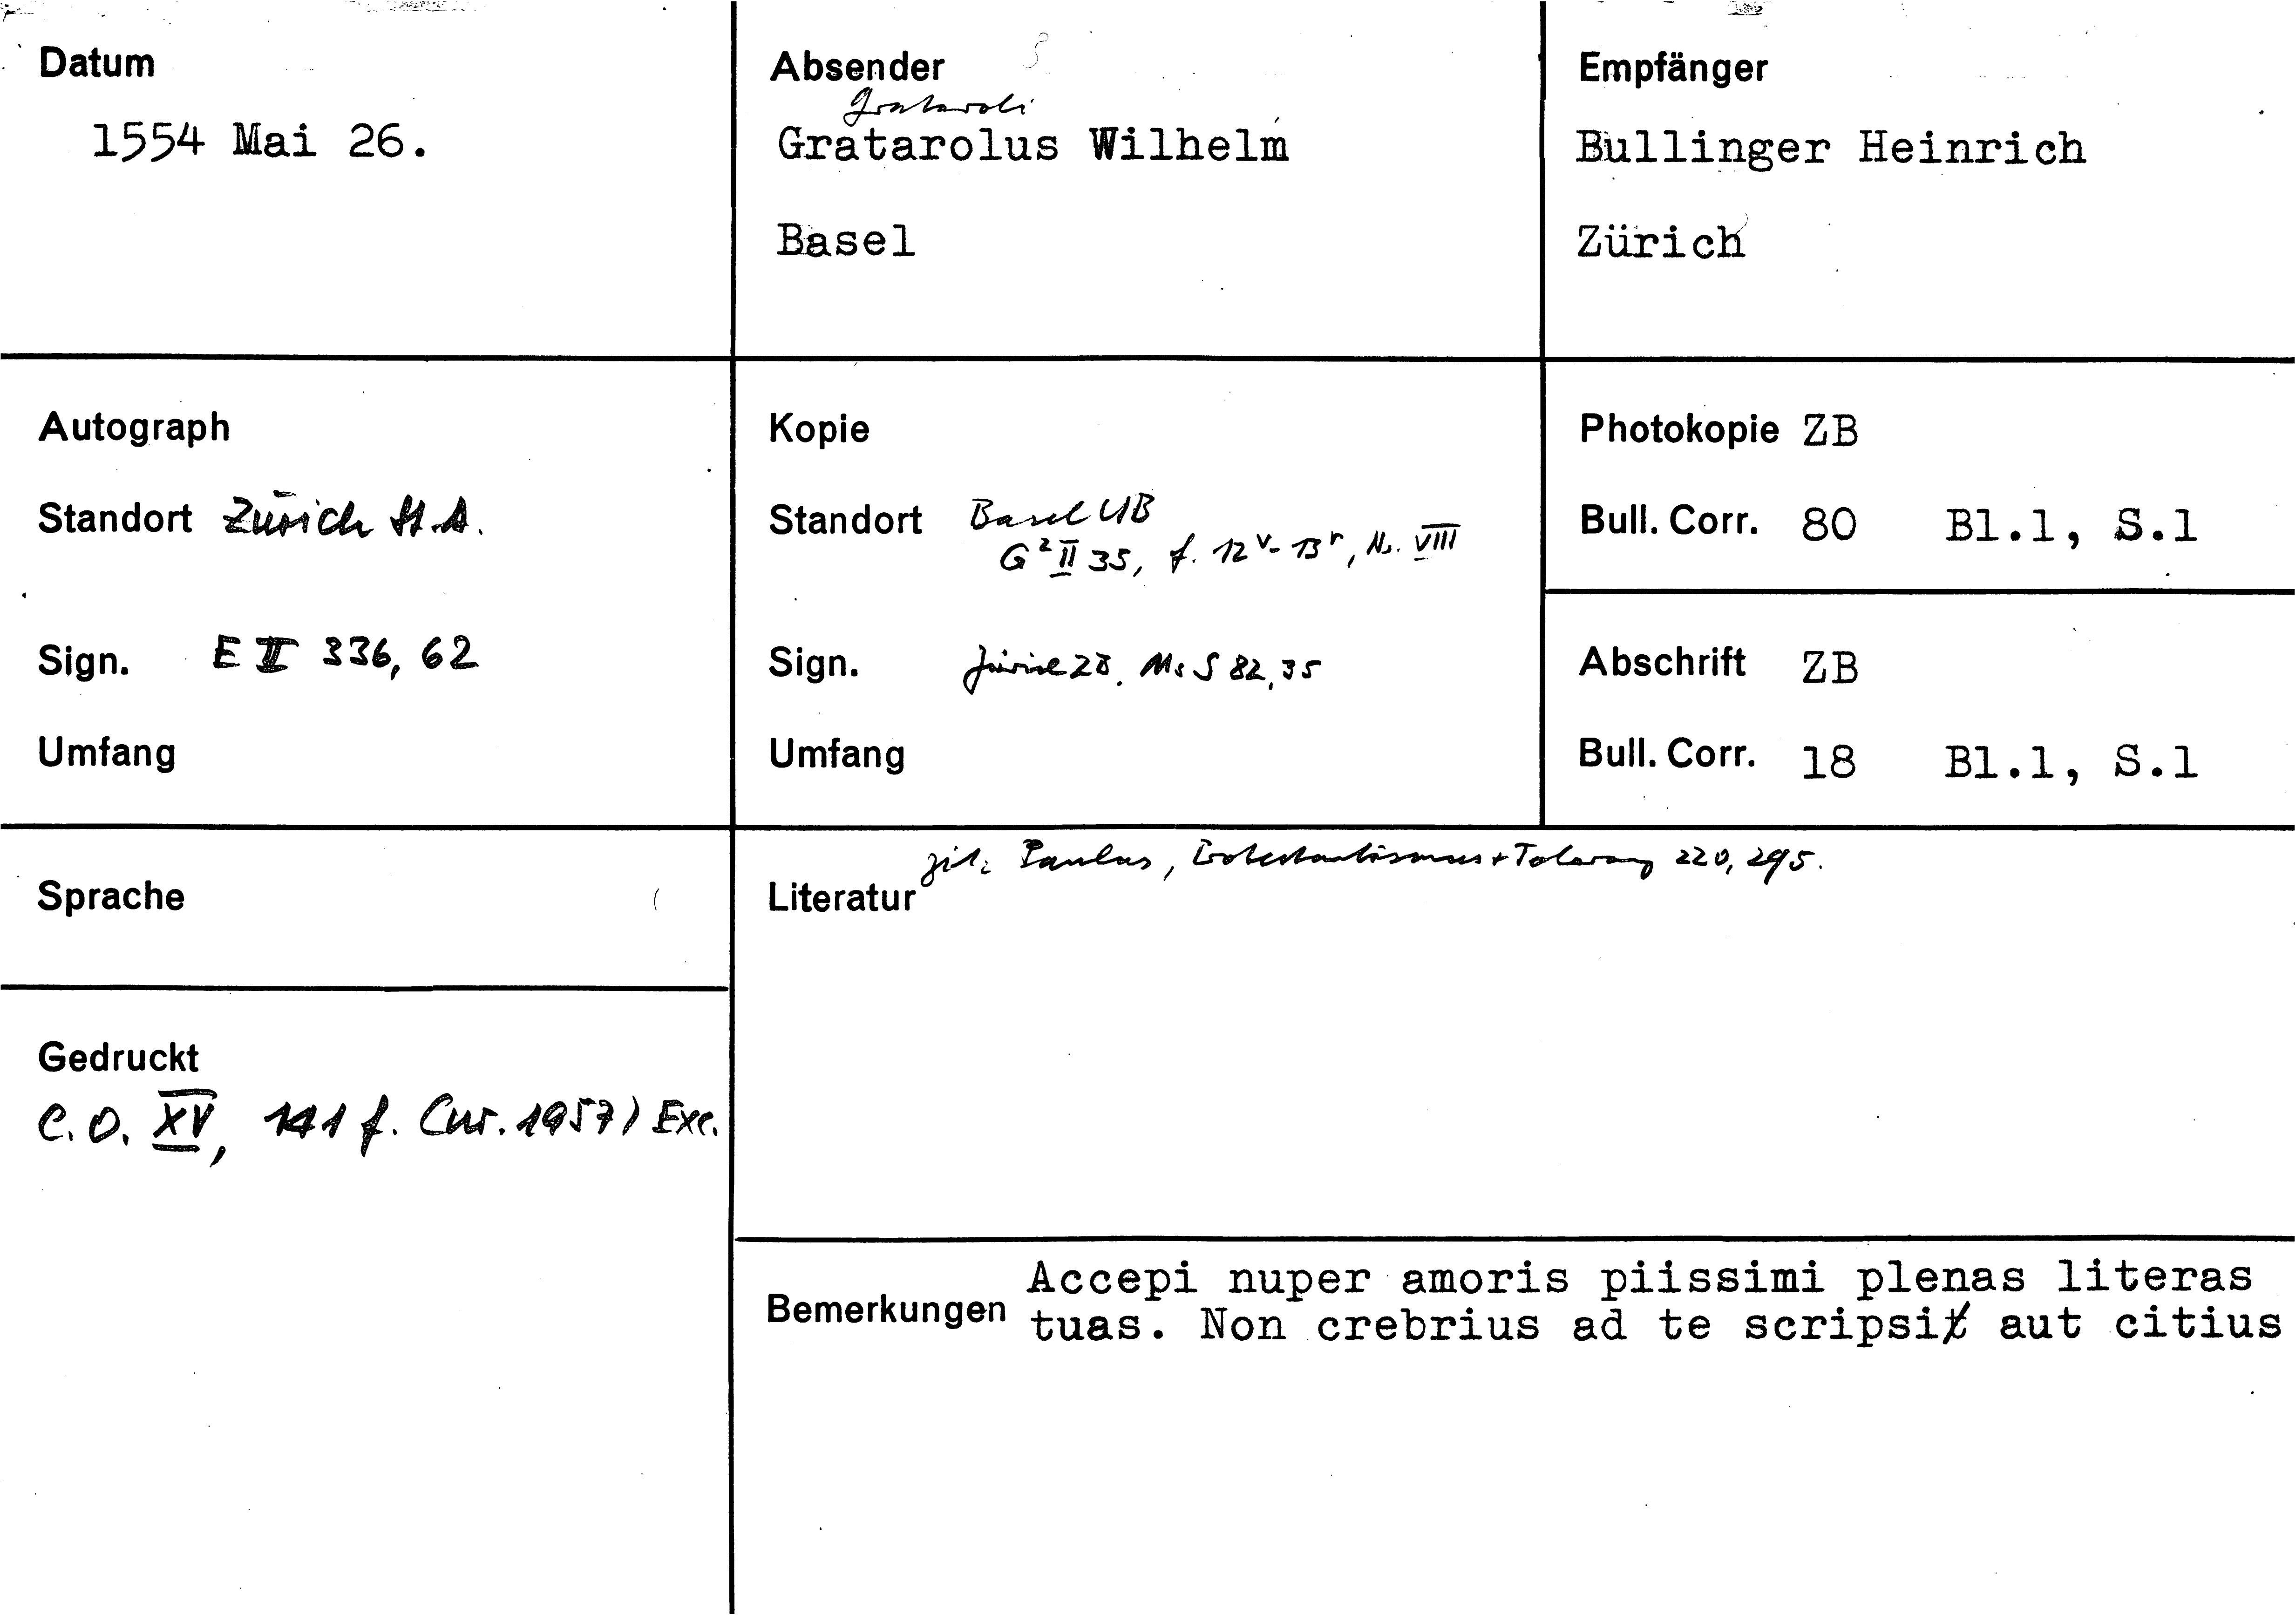 Datum
1554 Mai 26.
Absender
Grataroli
Gratarolus Wilhelm
Basel
Empfänger
Bullinger Heinrich
Zürich
Autograph
Standort Zürich StA.
Sign. E II 336, 62
Umfang
Kopie
Standort Basel UB
G² II 35, f. 12ᵛ-13ʳ, No. VIII
Sign. Zürich ZB. Ms S 82, 35
Umfang
Photokopie ZB
Bull. Corr. 80 Bl.1, S.1
Abschrift ZB
Bull. Corr. 18 Bl.1, S.1
Sprache
Gedruckt
C.O. XV, 141 f. (nr. 1957) Exc.
zit: Paulus, Protestantismus + Toleranz 220, 295.
Literatur
Bemerkungen
Accepi nuper amoris piissimi plenas literas
tuas. Non crebrius ad te scripsi aut citius